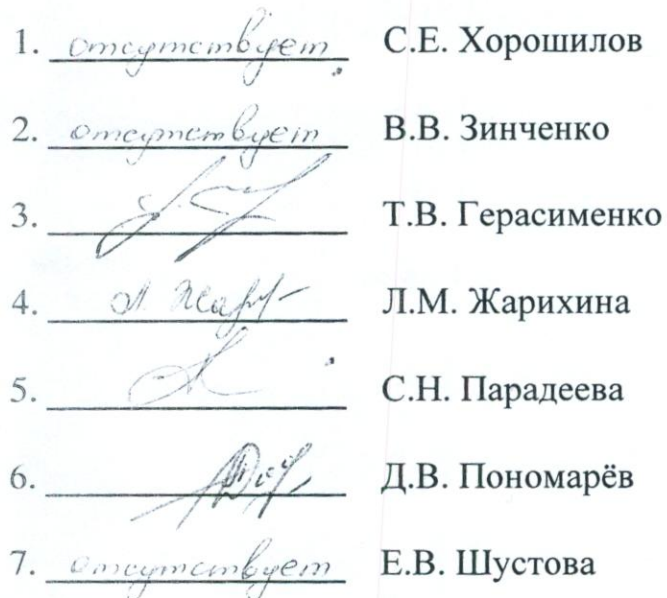 1. отсутствует С.Е. Хорошилов
2. отсутствует В.В. Зинченко
3. Т.В. Герасименко
4. Л.М. Жарихина
5. С.Н. Парадеева
6. Д.В. Пономарёв
7. отсутствует Е.В. Шустова